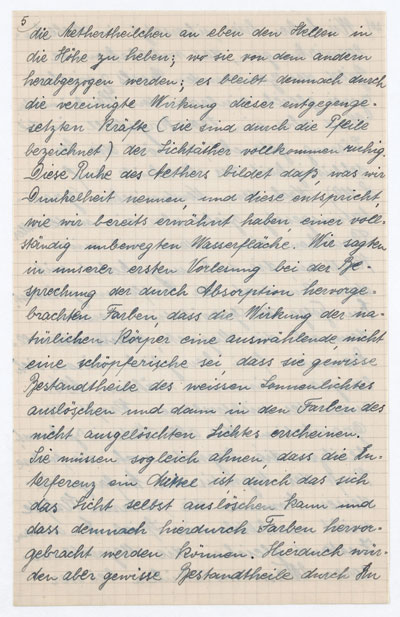 5
die Aethertheilchen an eben den Stellen in
die Höhe zu heben; wo sie von dem andern
herabgezogen werden; es bleibt demnach durch
die vereinigte Wirkung dieser entgegenge-
setzten Kräfte (sie sind durch die Pfeile
bezeichnet) der Lichtäther vollkommen ruhig.
Diese Ruhe des Aethers bildet daß, was wir
Dunkelheit nennen, und diese entspricht,
wie wir bereits erwähnt haben, einer voll-
ständig unbewegten Wasserfläche. Wir sagten
in unserer ersten Vorlesung bei der Be-
sprechung der durch Absorption hervorge-
brachten Farben, dass die Wirkung der na-
türlichen Körper eine auswählende nicht
eine schöpferische sei, dass sie gewisse
Bestandtheile des weissen Sonnenlichtes
auslöschen und dann in den Farben des
nicht ausgelöschten Lichtes erscheinen.
Sie müssen sogleich ahnen, dass die In-
terferenz ein Mittel ist, durch das sich
das Licht selbst auslöschen kann und
dass demnach hierdurch Farben hervor-
gebracht werden können. Hierduch wür-
den aber gewisse Bestandtheile durch In